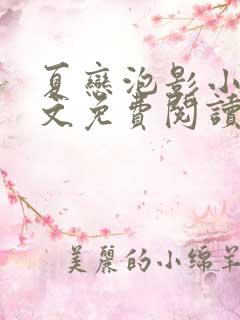 夏戀泡影小
文免費閱讀
美麗的小綿羊